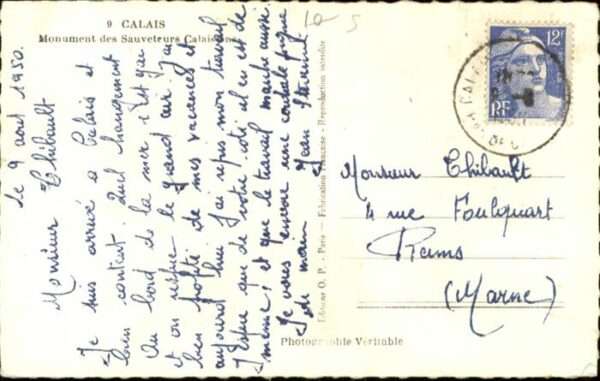 9 CALAIS
Monument des Sauveteurs Calaisiens
le 9 août 1950.
Monsieur Thibault
Je suis arrivé à Calais et
bien content. Quel changement
Au bord de la mer c'est gai
et on respire le grand air. J'ai
bien profité de mes vacances et
aujourd'hui j'ai repris mon travail
J'espère que de votre côté il en est de
même, et que le travail marche aussi.
Je vous envoie une cordiale poignée
de main Jean
Editions O. P. - Paris - Fabrication Française - Reproduction interdite
Photographie Véritable
10
5
12F
RF
CALAIS
Monsieur Thibault
4 rue Foulquart
Reims
(Marne)